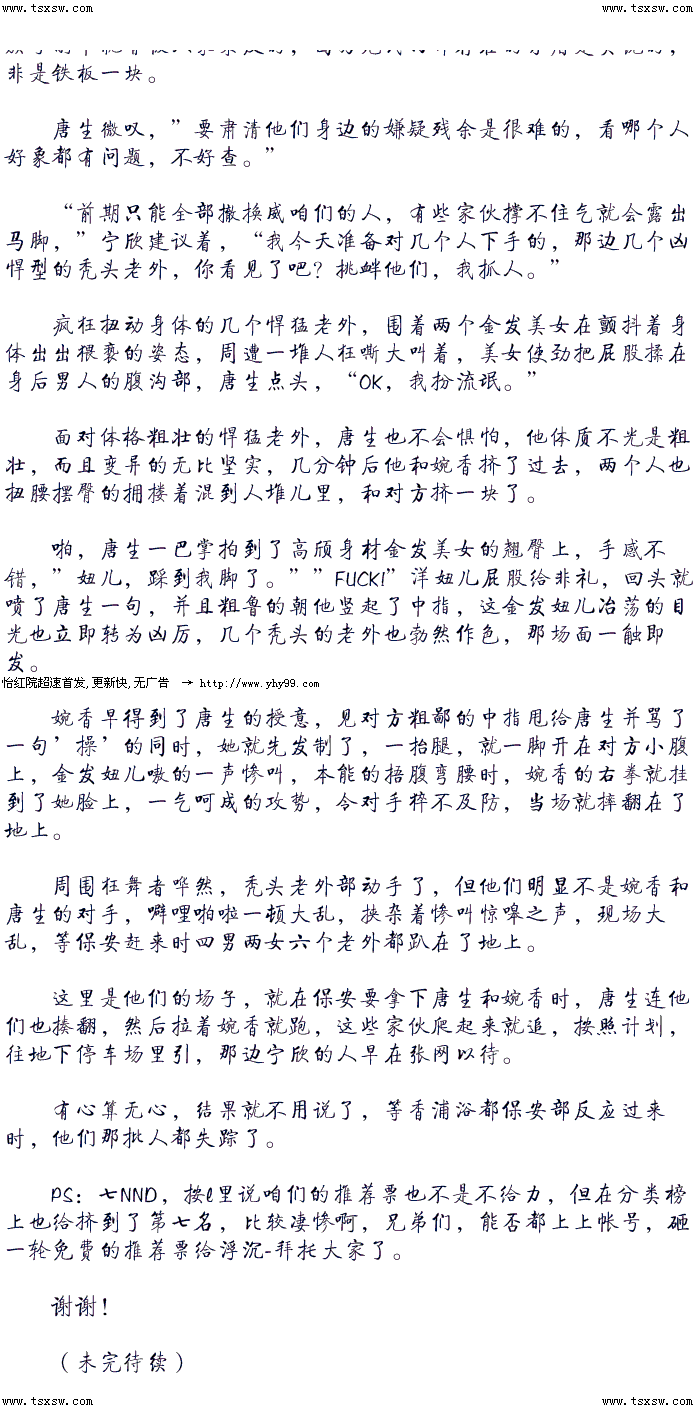 www.tsxsw.com www.tsxsw.com
非是铁板一块。
唐生微叹，”要肃清他们身边的嫌疑残余是很难的，看哪个人
好象都有问题，不好查。”
“前期只能全部撤换威咱们的人，有些家伙撑不住气就会露出
马脚，”宁欣建议着，“我今天准备对几个人下手的，那边几个凶
悍型的秃头老外，你看见了吧？挑衅他们，我抓人。”
疯狂扭动身体的几个悍猛老外，围着两个金发美女在颤抖着身
体出出猥亵的姿态，周遭一堆人狂嘶大叫着，美女使劲把屁股揉在
身后男人的腹沟部，唐生点头，“OK，我扮流氓。”
面对体格粗壮的悍猛老外，唐生也不会惧怕，他体质不光是粗
壮，而且变异的无比坚实，几分钟后他和婉香挤了过去，两个人也
扭腰摆臀的拥搂着混到人堆儿里，和对方挤一块了。
啪，唐生一巴掌拍到了高颀身材金发美女的翘臀上，手感不
错，”妞儿，踩到我脚了。””FUCK!”洋妞儿屁股给非礼，回头就
喷了唐生一句，并且粗鲁的朝他竖起了中指，这金发妞儿冶荡的目
光也立即转为凶厉，几个秃头的老外也勃然作色，那场面一触即
发。
怡红院超速首发,更新快,无广告 → http://www.yhy99.com
婉香早得到了唐生的授意，见对方粗鄙的中指甩给唐生并骂了
一句’操’的同时，她就先发制了，一抬腿，就一脚开在对方小腹
上，金发妞儿嗷的一声惨叫，本能的捂腹弯腰时，婉香的右拳就挂
到了她脸上，一气呵成的攻势，令对手猝不及防，当场就摔翻在了
地上。
周围狂舞者哗然，秃头老外部动手了，但他们明显不是婉香和
唐生的对手，噼哩啪啦一顿大乱，挟杂着惨叫惊嗥之声，现场大
乱，等保安赶来时四男两女六个老外都趴在了地上。
这里是他们的场子，就在保安要拿下唐生和婉香时，唐生连他
们也揍翻，然后拉着婉香就跑，这些家伙爬起来就追，按照计划，
往地下停车场里引，那边宁欣的人早在张网以待。
有心算无心，结果就不用说了，等香浦浴都保安部反应过来
时，他们那批人都失踪了。
PS：七NND，按l里说咱们的推荐票也不是不给力，但在分类榜
上也给挤到了第七名，比较凄惨啊，兄弟们，能否都上上帐号，砸
一轮免費的推荐票给浮沉-拜托大家了。
谢谢！
（未完待续）
www.tsxsw.com www.tsxsw.com